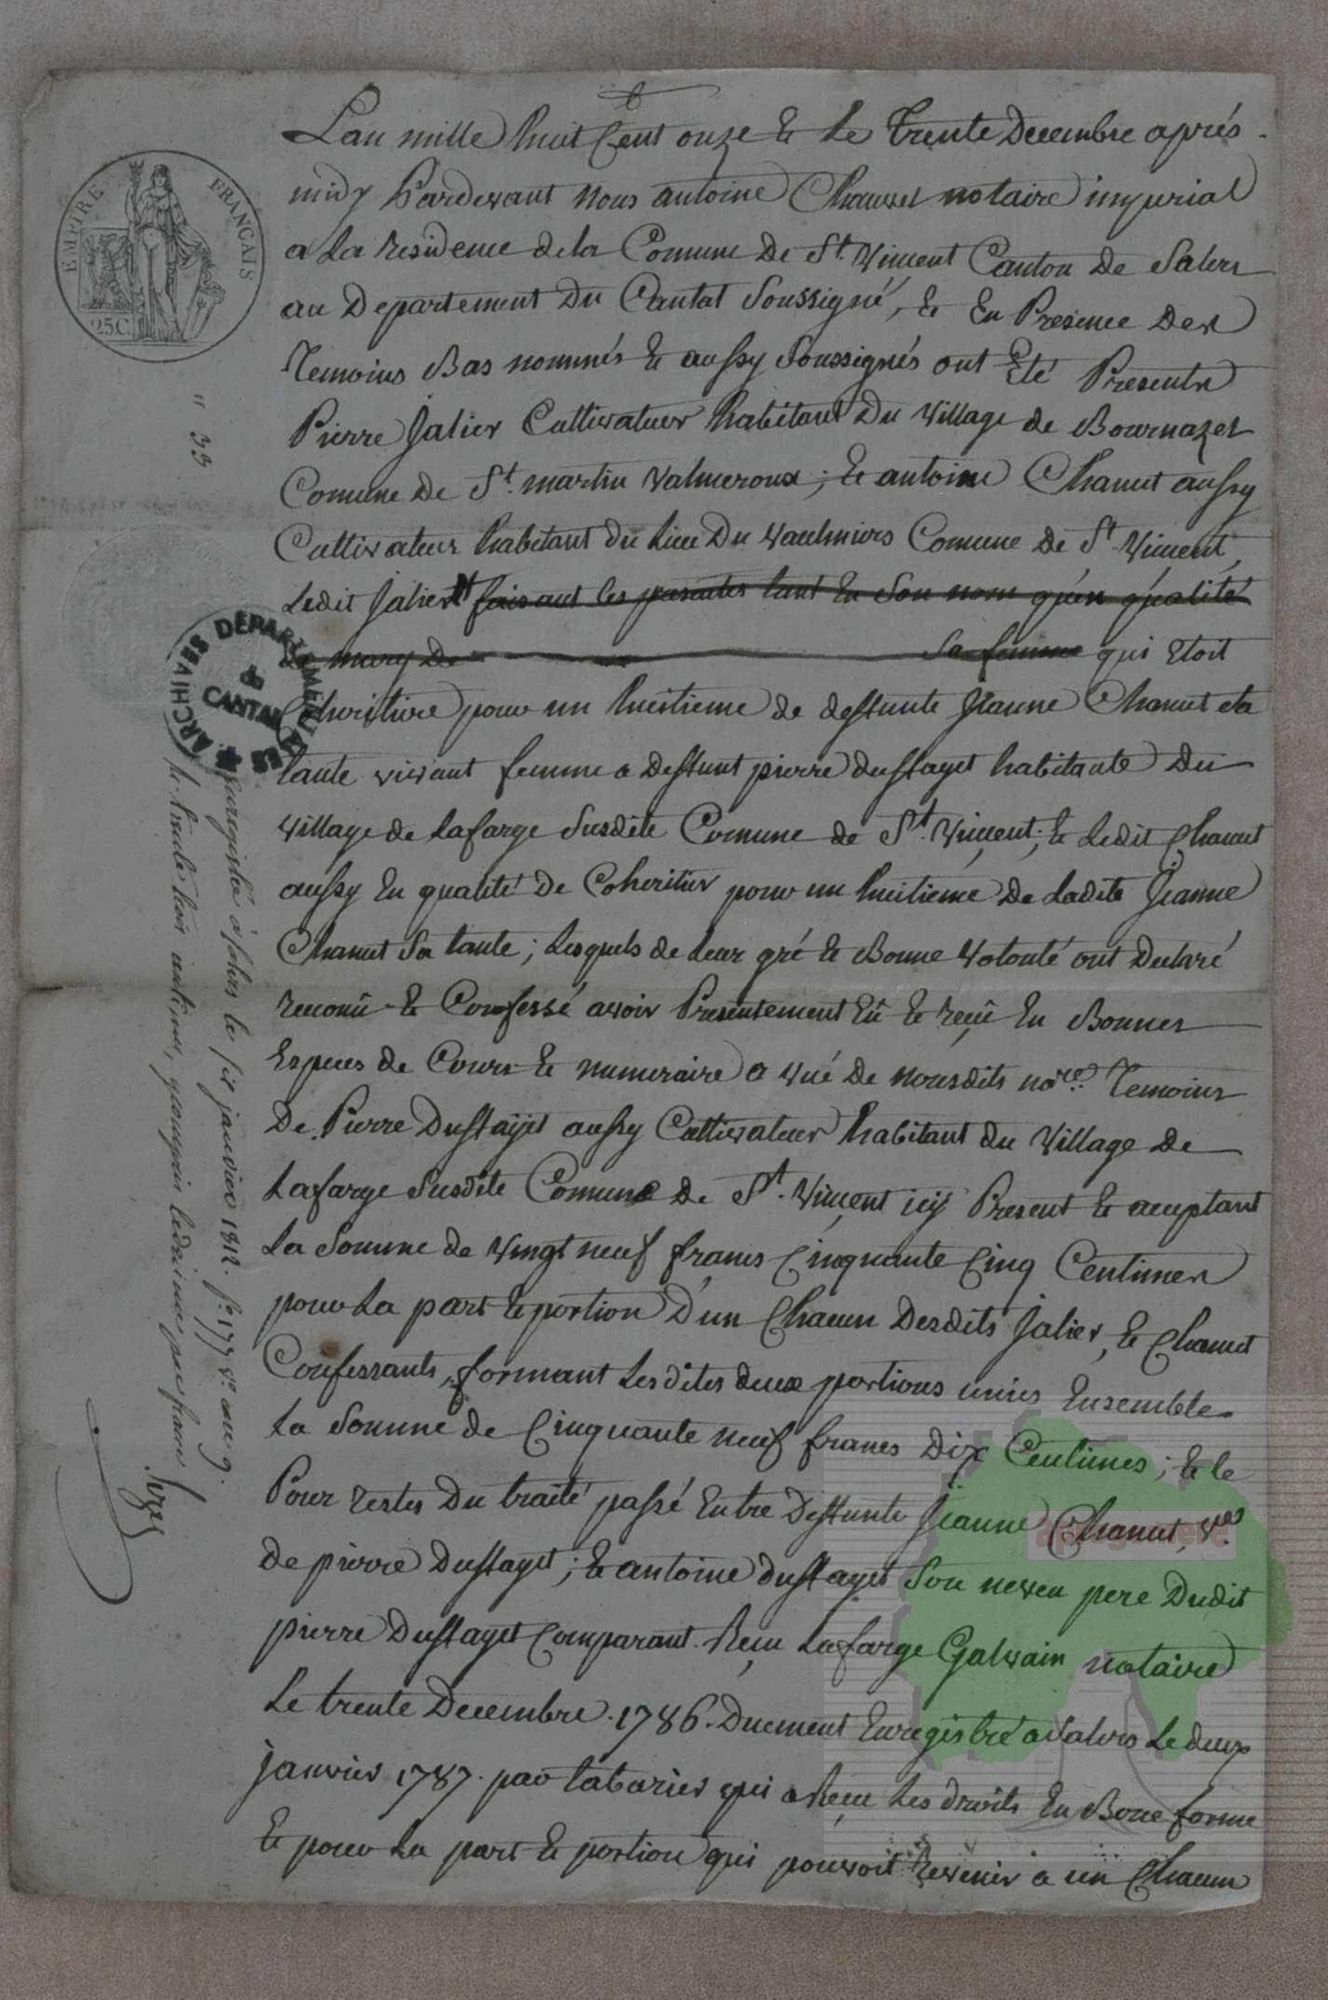 EMPIRE FRANÇAIS
25C.
" 33
ARCHIVES DEPARTEMENTALES
CANTAL
Lan mille huit Cent onze & le trente Decembre aprés
midy Pardevant nous antoine Chauvet notaire imperial
a La residence dela Comune de St. Vincent Canton de Salers
au Departement Du Cantal Soussigné, & En Presence Des
Temoins Bas nommés & aussy Soussignés ont Eté Presents
Pierre Jalier Cultivateur habitant Du Village de Bournazet
Comune De St. martin Valmeroux; & antoine Chanut aussy
Cultivateur habitant du Lieu Du vaulmiers Comune De St. Vincent
Ledit Jalier faisant les presentes tant En Son nom qu'en qualité
De mary De Sa femme qui Etoit
Cohéritière pour un huitieme de deffunte Jeanne Chanut Sa
tante vivant femme a Deffunt pierre duffayet habitante Du
village de Lafarge Susdite Comune de St. Vincent; & Ledit Chanut
aussy En qualité De Coheritier pour un huitieme De Ladite Jeanne
Chanut Sa tante; Lesquels de leur gré & Bonne Volonté ont Declaré
reconnû & Confessé avoir Presentement Eû & reçû En Bonnes
Espeses de Cours & numeraire a vüé De nousdits nore. Temoins
De Pierre Duffayet aussy Cultivateur habitant du Village De
Lafarge Susdite Comune De St. Vincent icy Present & aceptant
La Somme de Vingt neuf francs Cinquante Cinq Centimes
pour La part & portion D'un Chacun Desdits Jalier, & Chanut
Confessants, formant Lesdites deux portions unies Ensemble
La Somme de Cinquante neuf francs Dix Centimes; & Ce
Pour restes Du traité passé Entre Deffunte Jeanne Chanut, Ve.
De pierre Duffayet; & antoine duffayet Son neveu pere Dudit
pierre Duffayet Comparant. Reçu Lafarge Galvain notaire
Le trente Decembre 1786. Duement Enregistré a Salers Le deux
janvier 1787. par tabaries qui a Reçu Les droits En Bone forme
& pour La part & portion qui pouvoit Revenir a un Chacun
Enregistré à Salers le six janvier 1812. fo. 177 vo. case 9.